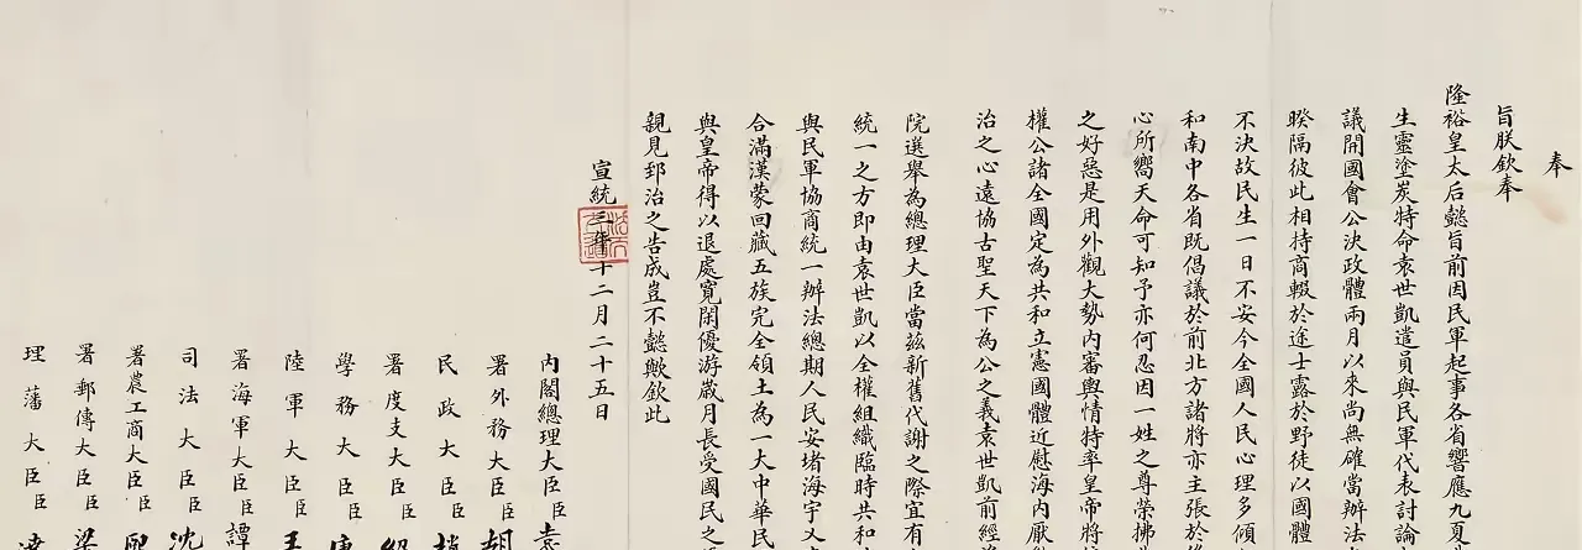 奉
旨朕欽奉
隆裕皇太后懿旨前因民軍起事各省響應九夏
生靈塗炭特命袁世凱遣員與民軍代表討論
議開國會公決政體兩月以來尚無確當辦法
睽隔彼此相持商輟於途士露於野徒以國體
不決故民生一日不安今全國人民心理多傾
和南中各省既倡議於前北方諸將亦主張於
心所嚮天命可知予亦何忍因一姓之尊榮拂
之好惡是用外觀大勢內審輿情特率皇帝將
權公諸全國定為共和立憲國體近慰海內厭
治之心遠協古聖天下為公之義袁世凱前經
院選舉為總理大臣當茲新舊代謝之際宜有
統一之方即由袁世凱以全權組織臨時共和
與民軍協商統一辦法總期人民安堵海宇乂
合滿漢蒙回藏五族完全領土為一大中華民
與皇帝得以退處寬閑優游歲月長受國民之
親見郅治之告成豈不懿歟欽此
宣統三年十二月二十五日
內閣總理大臣臣袁
署外務大臣臣胡
民政大臣臣趙
署度支大臣臣紹
學務大臣臣唐
陸軍大臣臣王
署海軍大臣臣譚
司法大臣臣沈
署農工商大臣臣熙
署郵傳大臣臣梁
理藩大臣臣達